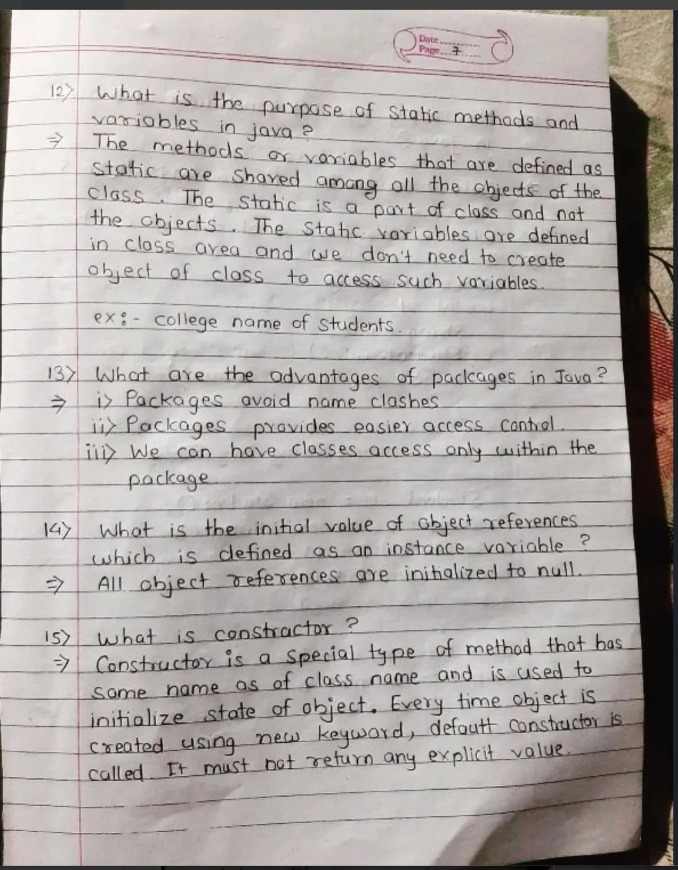 Date
Page 7
12> What is the purpose of static methods and
variables in java ?
⇒ The methods or variables that are defined as
static are shared among all the objects of the
class . The static is a part of class and not
the objects . The static variables are defined
in class area and we don't need to create
object of class to access such variables.
ex:- college name of students.
13> What are the advantages of packages in Java ?
⇒ i> Packages avoid name clashes
ii> Packages provides easier access control.
iii> We can have classes access only within the
package
14> What is the initial value of object references
which is defined as an instance variable ?
⇒ All object references are initialized to null.
15> What is constractor ?
⇒ Constructor is a special type of method that has
same name as of class name and is used to
initialize state of object. Every time object is
created using new keyword, defautt constructor is
called. It must not return any explicit value.